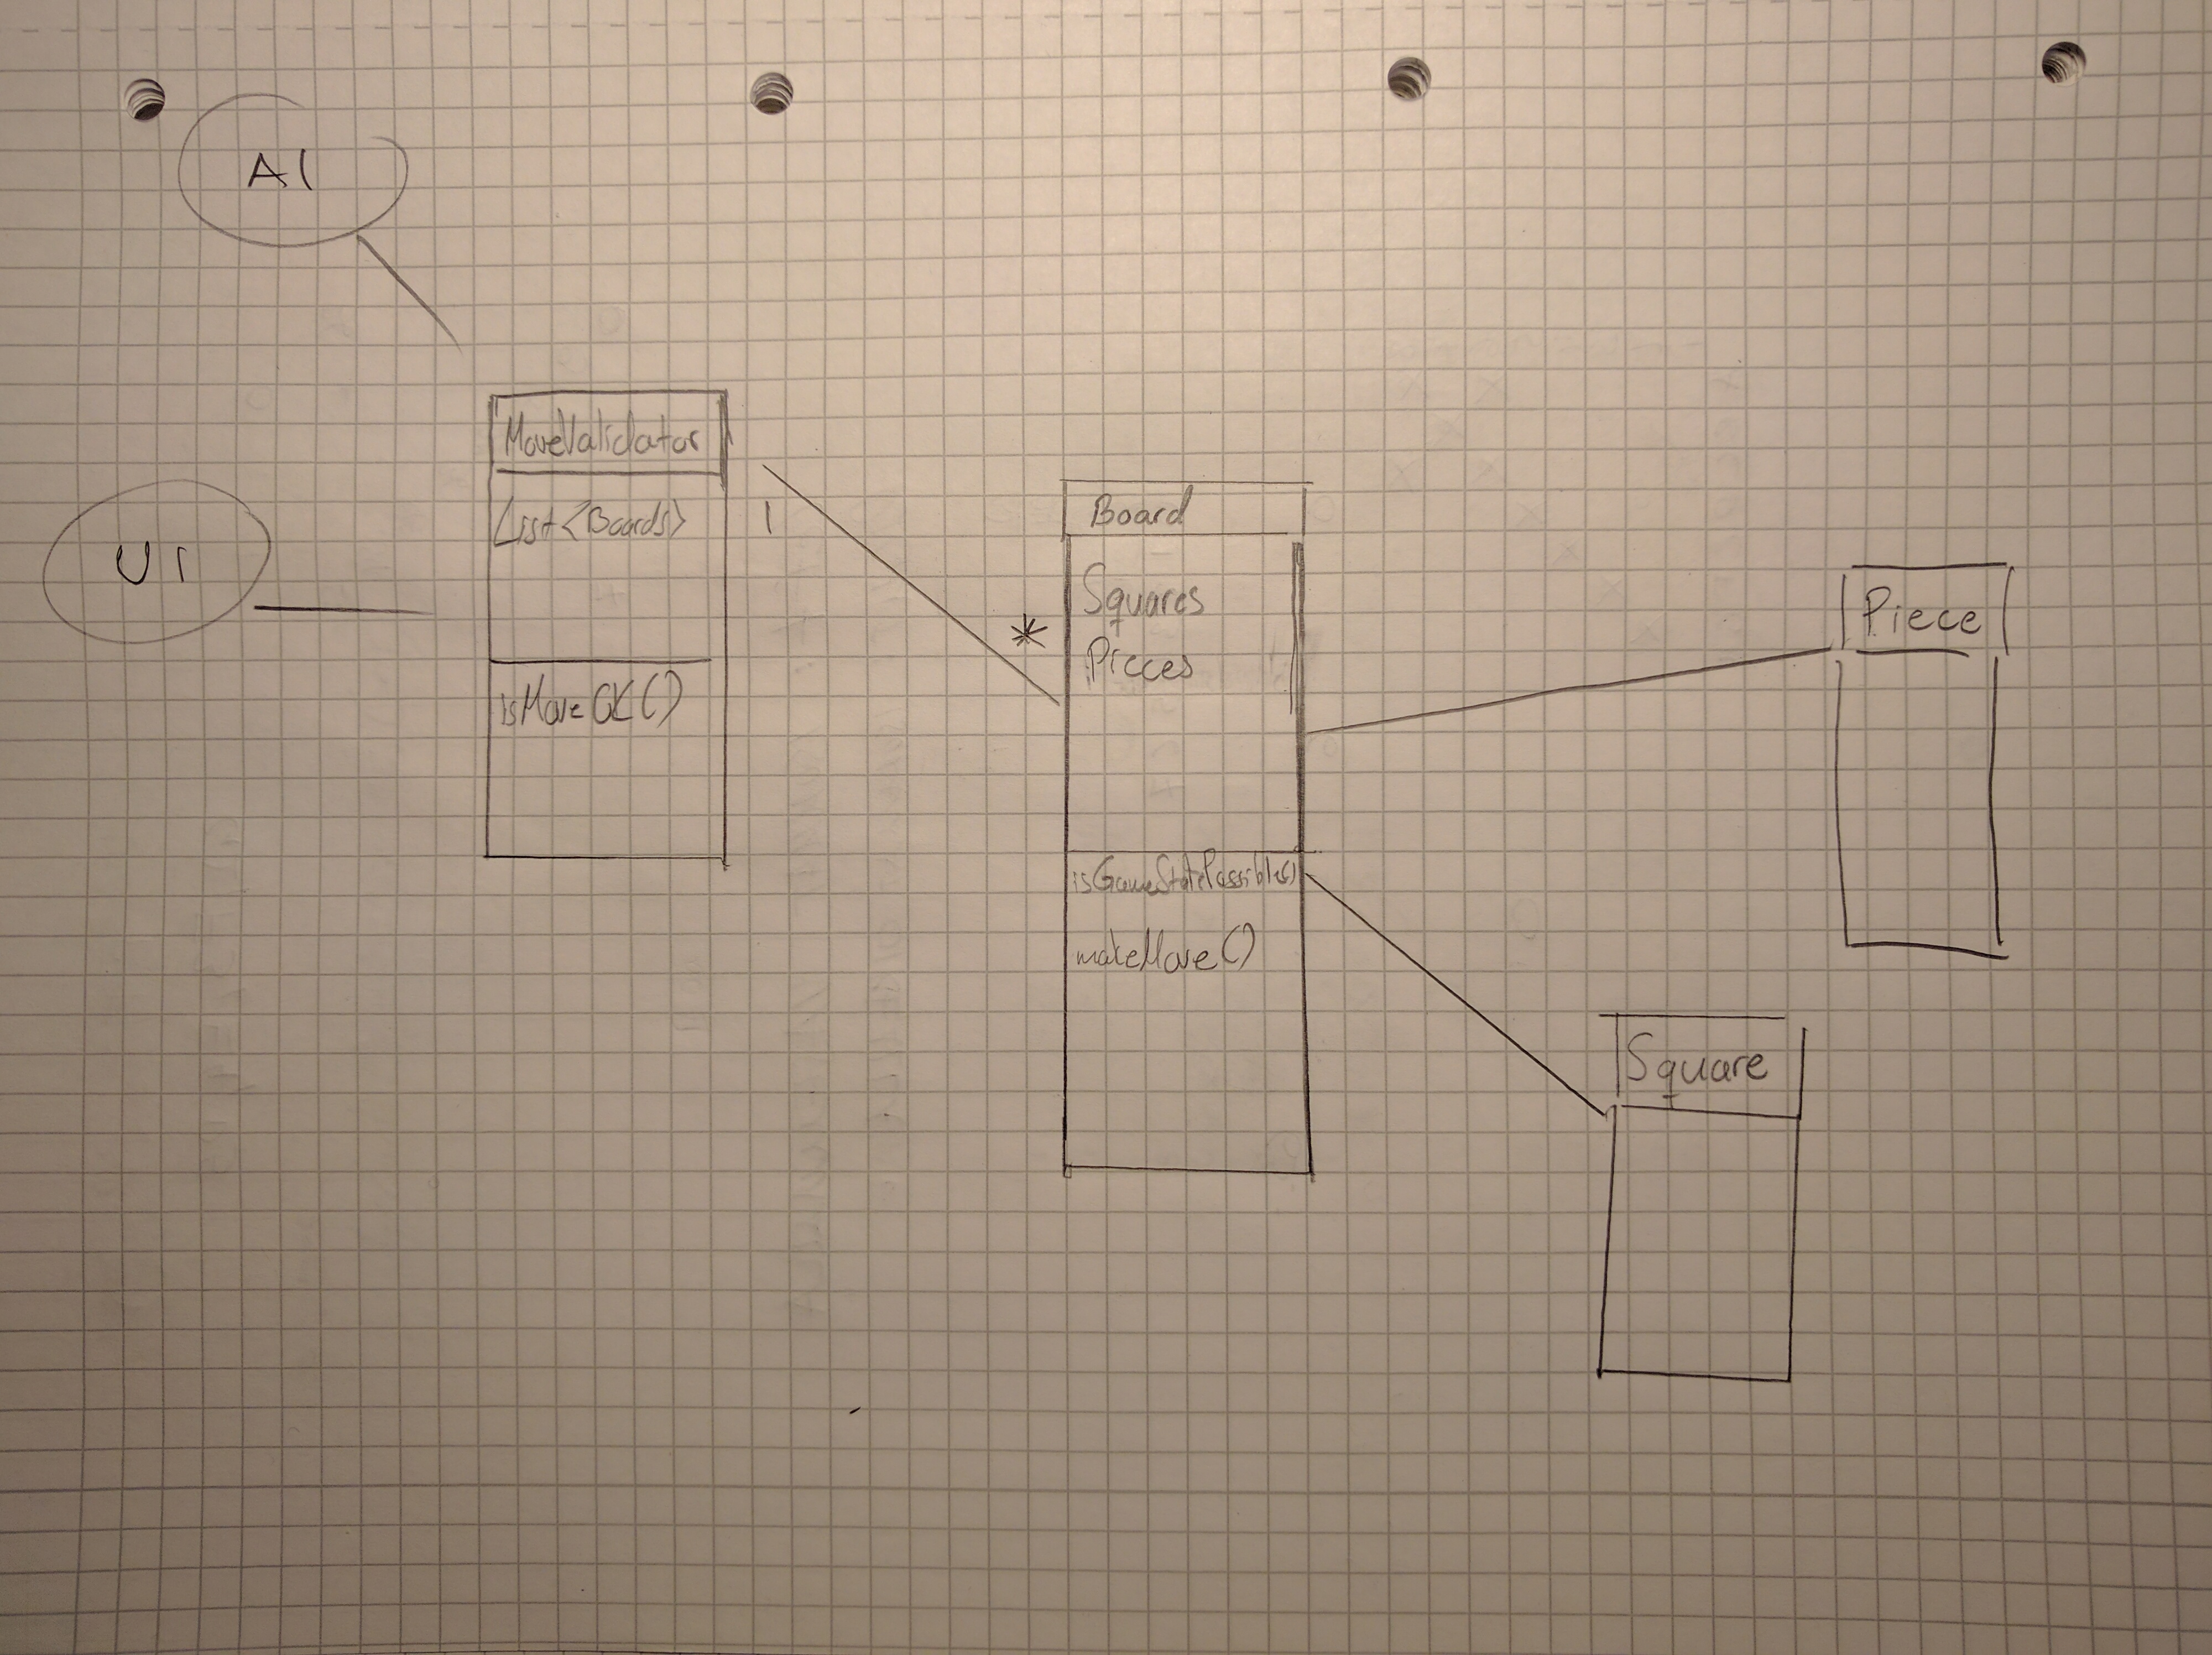 AI
UI
MoveValidator
List<Boards>
isMoveOK()
1
*
Board
Squares
Pieces
isGameStatePossible()
makeMove()
Piece
Square